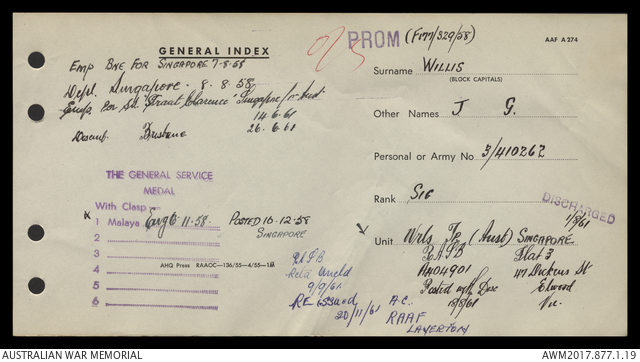 GENERAL INDEX
Emp BNE FOR SINGAPORE 7-8-58
Singapore - 8.8.58
Singapore
14.6.61
Disemb. Brisbane
26.6.61
THE GENERAL SERVICE
MEDAL
With Clasp
x 1 Malaya 11.58. POSTED 16.12.58
SINGAPORE
2
3
4
5
6
AHQ Press RAACC-136/55-4/55-1M
9/9/61
RE issued
20/11/61
PROM (F177/329/58)
AAF A 274
Surname WILLIS
(BLOCK CAPITALS)
Other Names J G.
Personal or Army No 3/410262
Rank SIG
DISCHARGED
1/8/61
Unit Wrls Tp (Aust) SINGAPORE
Flat 3
AN04901 47 Dickens St
Posted with Disc Elwood
Vic.
A.C.
RAAF
LAVERTON
AUSTRALIAN WAR MEMORIAL
AWM2017.877.1.19